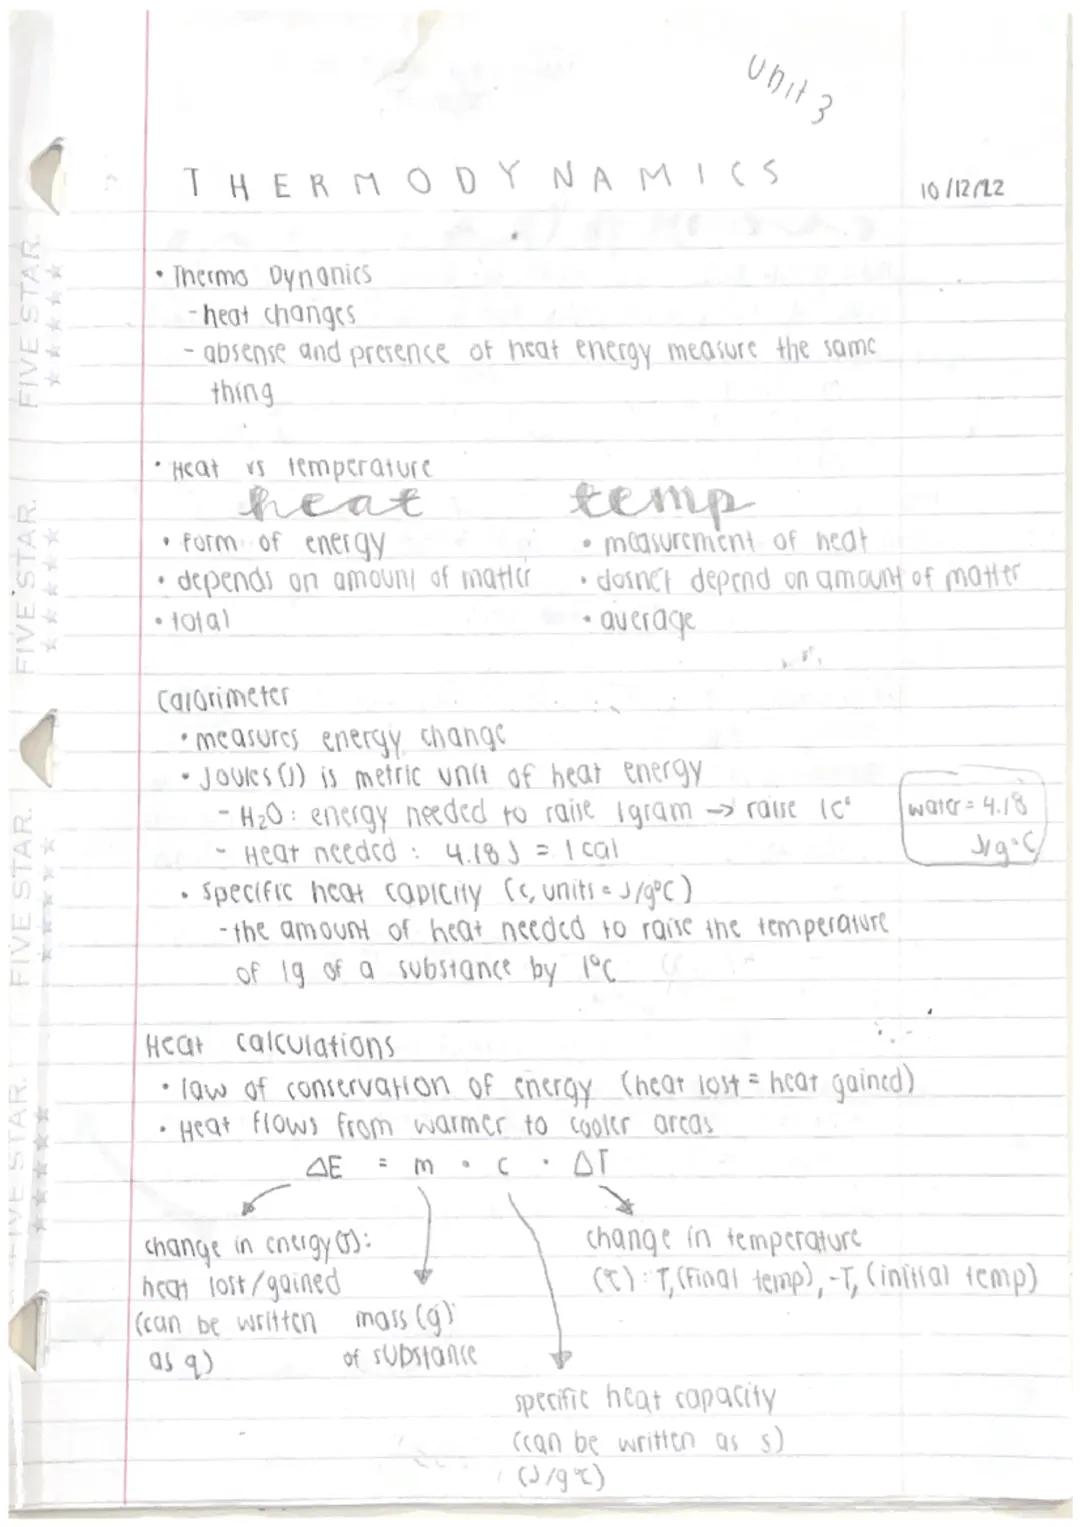 unit 3
THERMODYNAMICS
10/12/22
• Thermo Dynanics
- heat changes
- absense and presence of heat energy measure the same
thing
• Heat vs temperature
heat temp
• form of energy • measurement of heat
• depends on amount of matter • dosnet depend on amount of matter
• total • average
Calorimeter
• measures energy change
• Joules (J) is metric unit of heat energy
- H₂O: energy needed to raise 1gram → raise 1C° water = 4.18
- Heat needed: 4.18 J = 1 cal J/g°C
• Specific heat capicity (c, units = J/g°C)
- the amount of heat needed to raise the temperature
of 1g of a substance by 1°C
Heat calculations
• law of conservation of energy (heat lost = heat gained)
• Heat flows from warmer to cooler areas
ΔE = m • c • ΔT
change in energy (J): change in temperature
heat lost/gained (℃): T, (Final temp), -T, (initial temp)
(can be written mass (g)
as q) of substance
specific heat capacity
(can be written as s)
(J/g℃)
FIVE STAR.
FIVE STAR.
FIVE STAR.
FIVE STAR.